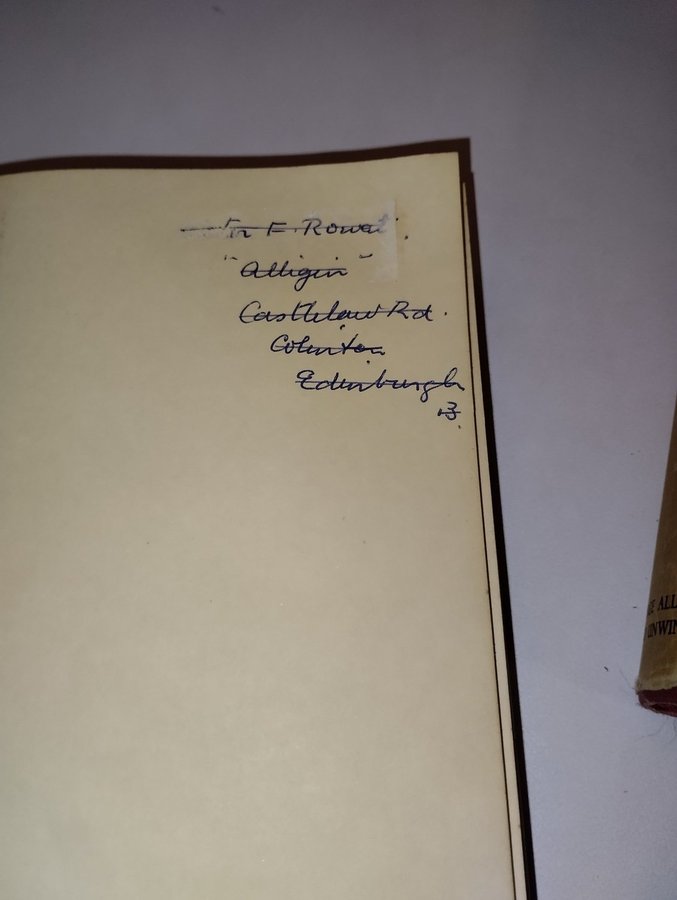 F. Rowat.
"Alligin"
Castlelaw Rd.
Colinton
Edinburgh
13.
ALL
UNWIN